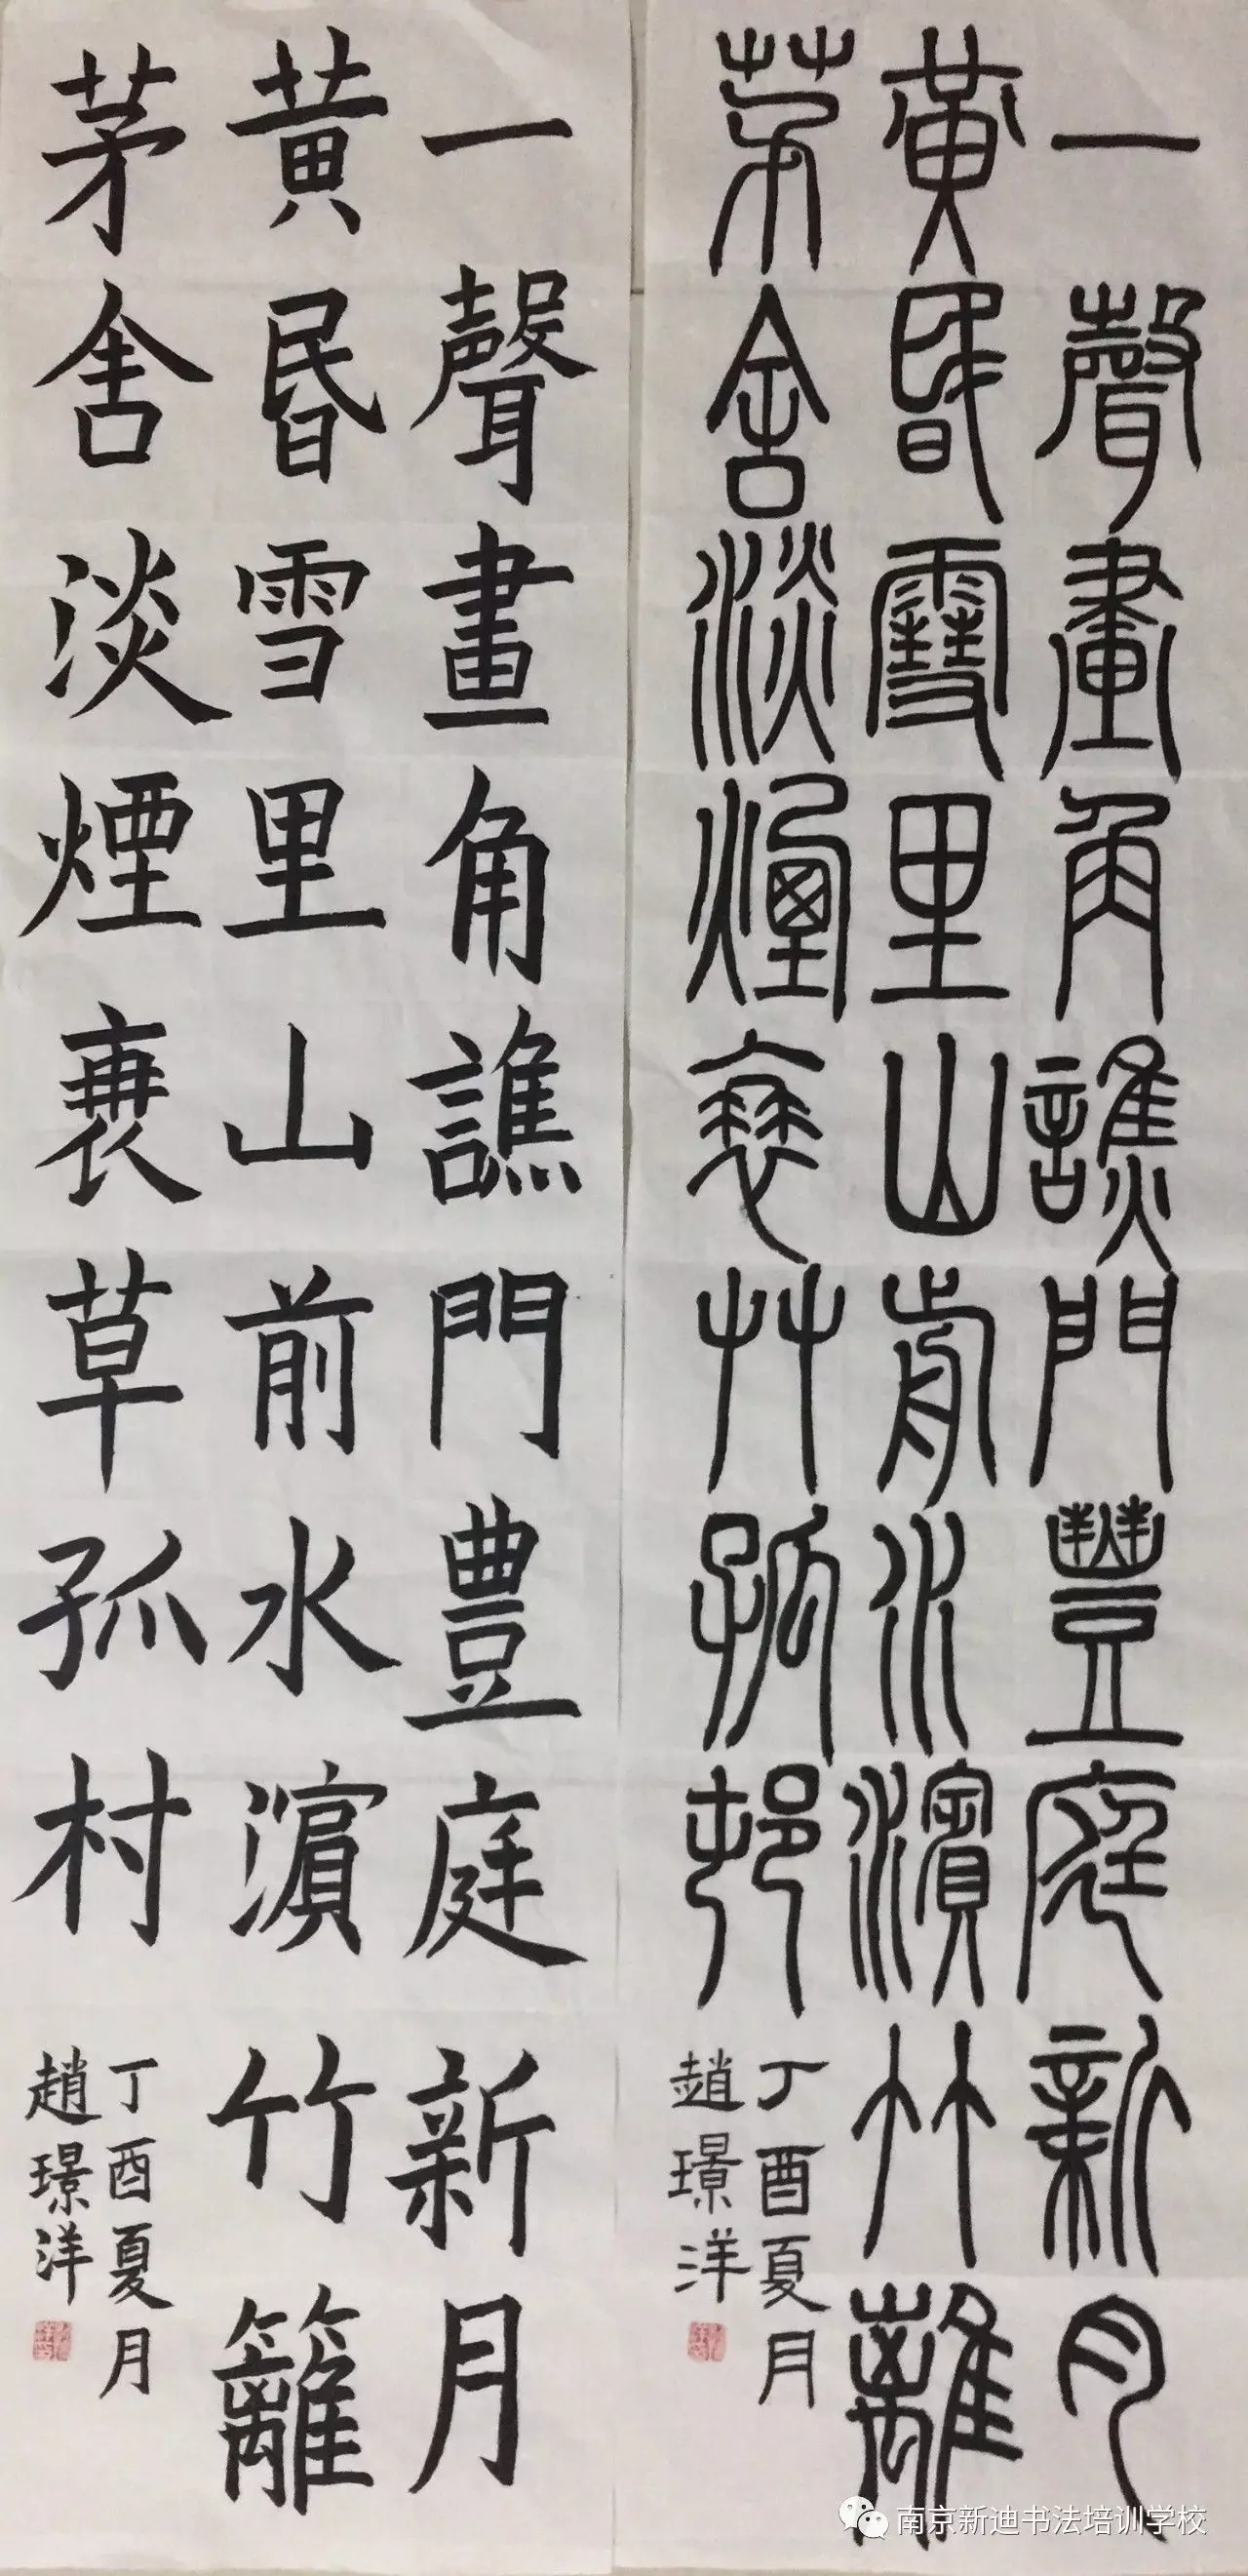 一聲畫角譙門豐庭新月
黃昏雪里山前水濱竹離
茅舍淡煙衰艸孤邨
丁酉夏月
趙璟洋
一聲畫角譙門豊庭新月
黄昏雪里山前水濵竹籬
茅舍淡煙衰草孤村
丁酉夏月
趙璟洋
南京新迪书法培训学校